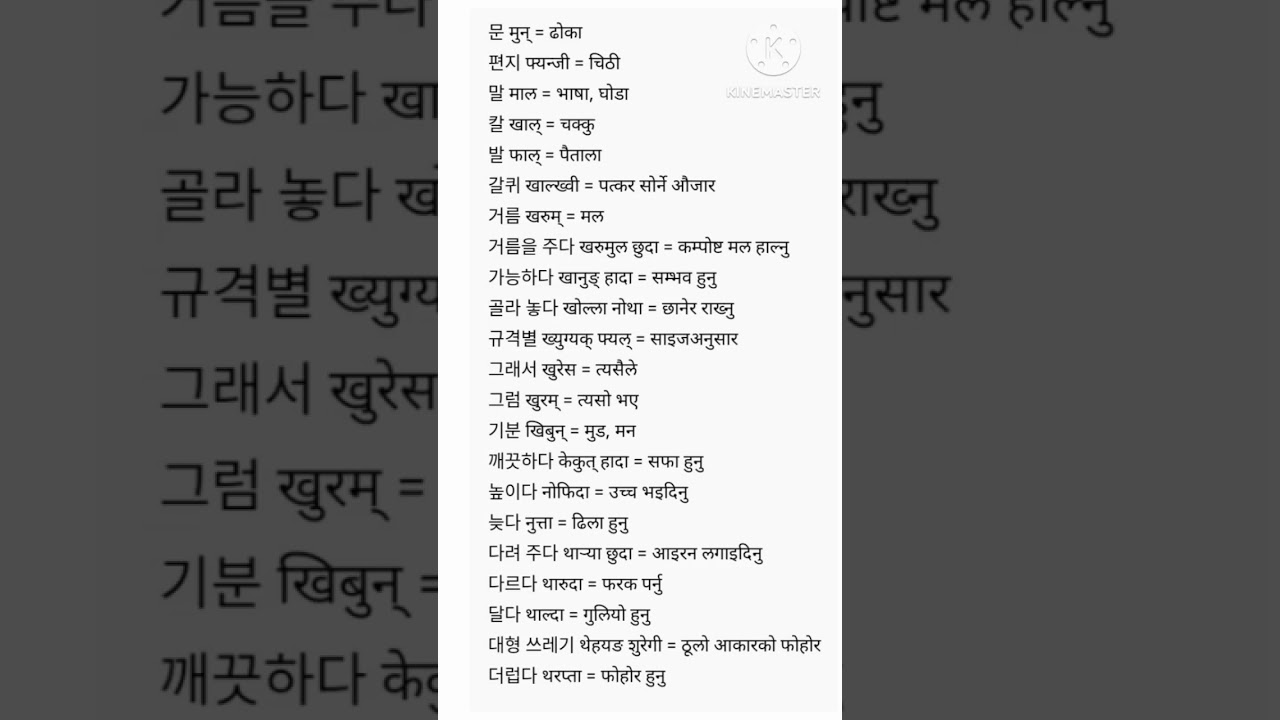 문 मुन् = ढोका
편지 फ्यन्जी = चिठी
말 माल = भाषा, घोडा
칼 खाल् = चक्कु
발 फाल् = पैताला
갈퀴 खाल्ख्वी = पत्कर सोर्ने औजार
거름 खरुम् = मल
거름을 주다 खरुमुल छुदा = कम्पोष्ट मल हाल्नु
가능하다 खानुङ् हादा = सम्भव हुनु
골라 놓다 खोल्ला नोथा = छानेर राख्नु
규격별 ख्युग्यक् फ्यल् = साइजअनुसार
그래서 खुरेस = त्यसैले
그럼 खुरम् = त्यसो भए
기분 खिबुन् = मुड, मन
깨끗하다 केकुत् हादा = सफा हुनु
높이다 नोफिदा = उच्च भइदिनु
늦다 नुत्ता = ढिला हुनु
다려 주다 थाऱ्या छुदा = आइरन लगाइदिनु
다르다 थारुदा = फरक पर्नु
달다 थाल्दा = गुलियो हुनु
대형 쓰레기 थेहयङ शुरेगी = ठूलो आकारको फोहोर
더럽다 थरप्ता = फोहोर हुनु
KINEMASTER
가능하다 खा
골라 놓다 खो
राख्नु
규격별 ख्युग्य
नुसार
그래서 खुरेस
그럼 खुरम् =
기분 खिबुन् =
깨끗하다 केकु